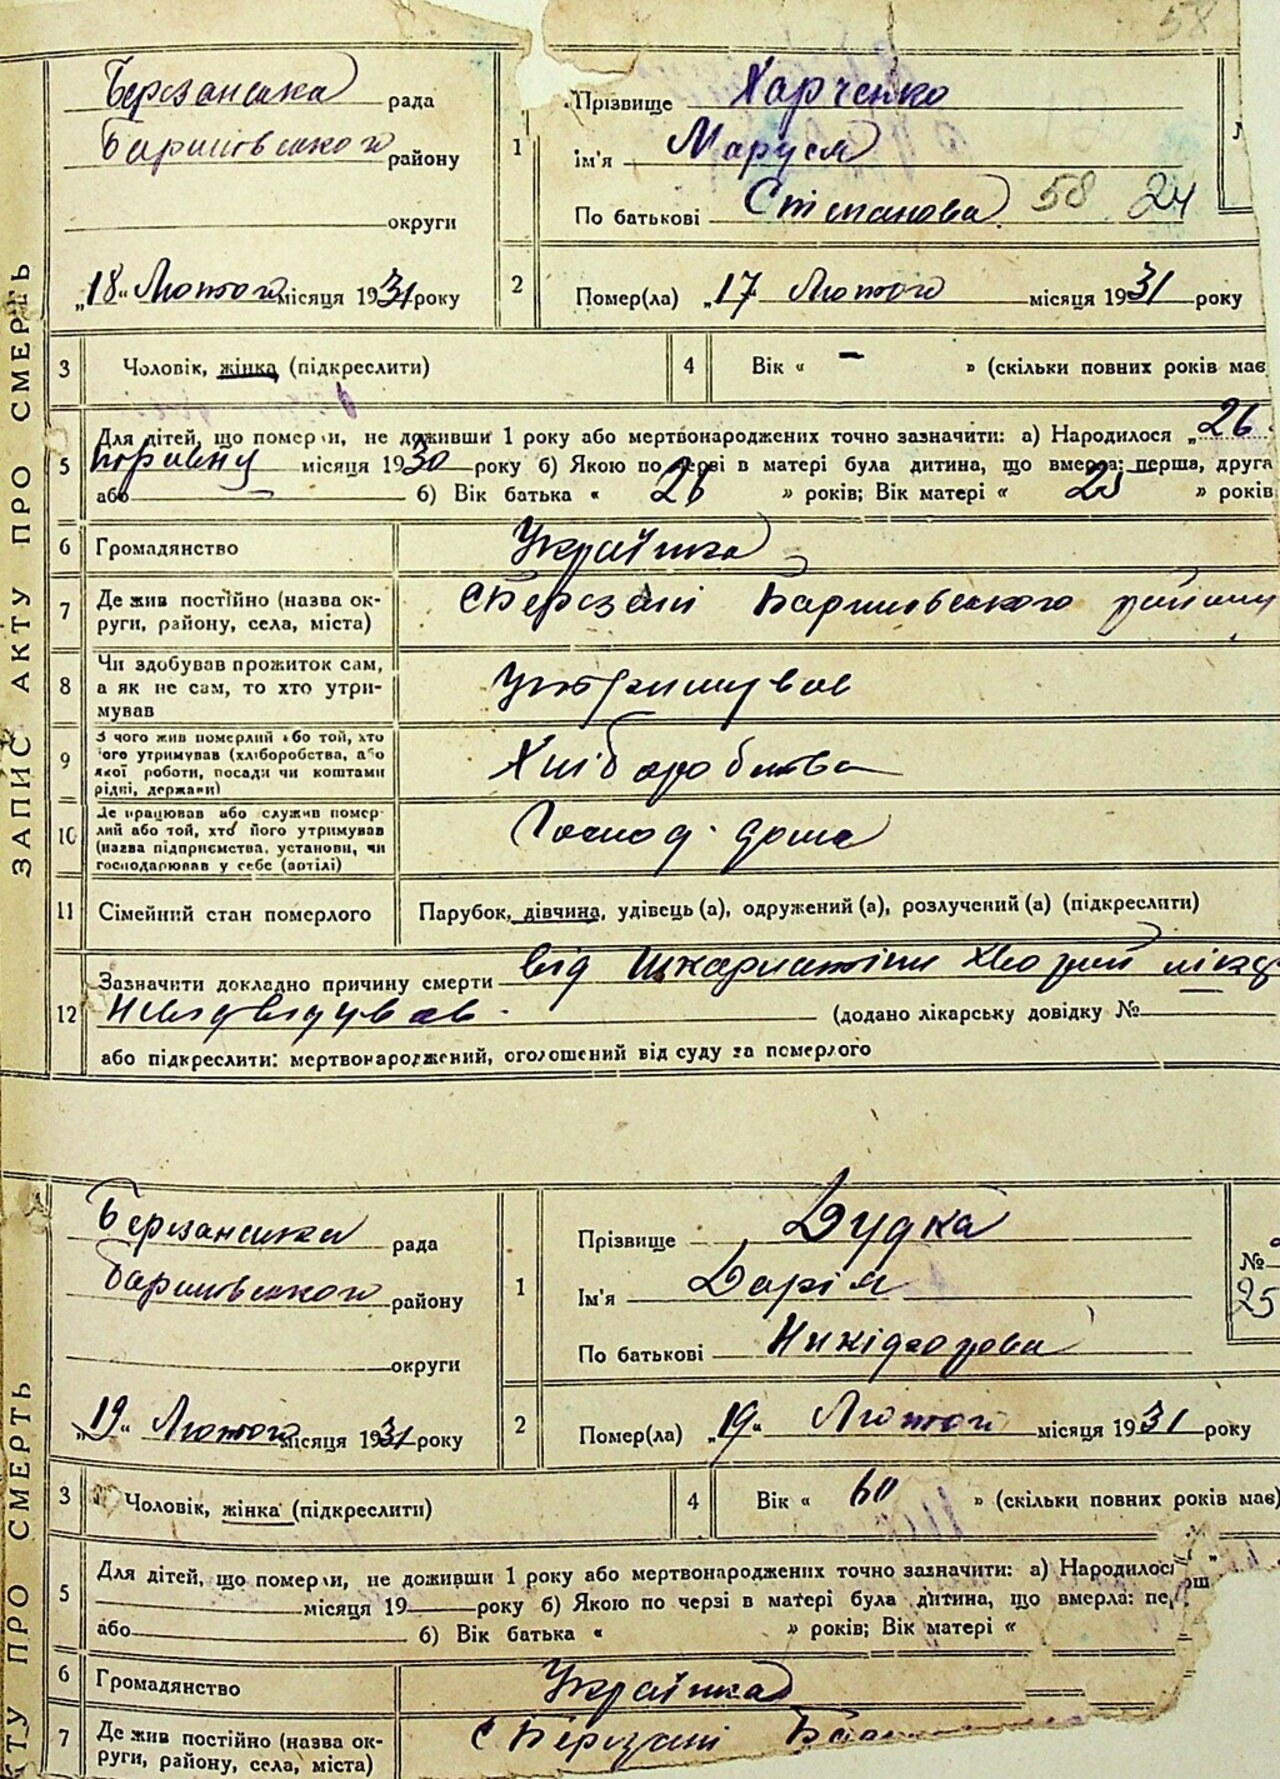 58
ЗАПИС АКТУ ПРО СМЕРТЬ
Березанська рада
Баришівського району
округи
„18“ Лютого місяця 1931 року
1
Прізвище Харченко
Ім'я Маруся
По батькові Степанова 58 24
2
Помер(ла) „17 Лютого місяця 1931 року
3 Чоловік, жінка (підкреслити)
4 Вік « – » (скільки повних років має
5 Для дітей, що померли, не доживши 1 року або мертвонароджених точно зазначити: а) Народилося „26
місяця 1930 року б) Якою по черзі в матері була дитина, що вмерла: перша, друга
або б) Вік батька « 26 » років; Вік матері « 25 » років
6 Громадянство Українка
7 Де жив постійно (назва округи, району, села, міста)
с Березані Баришівського району
8 Чи здобував прожиток сам,
а як не сам, то хто утри-
мував
утримував
9 З чого жив померлий або той, хто
його утримував (хліборобства, або
якої роботи, посади чи коштами
рідні, держави)
Хліборобства
10 Де працював або служив помер-
лий або той, хто його утримував
(назва підприємства, установи, чи
господарював у себе (артілі)
Господ. дома
11 Сімейний стан померлого Парубок, дівчина, удівець (а), одружений (а), розлучений (а) (підкреслити)
12 Зазначити докладно причину смерти від шкарлатіни хворий лікар
невідвідував. (додано лікарську довідку №
або підкреслити: мертвонароджений, оголошений від суду за померлого
КТУ ПРО СМЕРТЬ
Березанська рада
Баришівського району
округи
„19“ Лютого місяця 1931 року
1
Прізвище Дудка
Ім'я Дарія
По батькові Никіфорова
№
25
2
Помер(ла) „19“ Лютого місяця 1931 року
3 Чоловік, жінка (підкреслити)
4 Вік « 60 » (скільки повних років має)
5 Для дітей, що померли, не доживши 1 року або мертвонароджених точно зазначити: а) Народилося „
місяця 19 року б) Якою по черзі в матері була дитина, що вмерла: перш
або б) Вік батька « » років; Вік матері «
6 Громадянство Українка
7 Де жив постійно (назва ок-
руги, району, села, міста)
с Березані